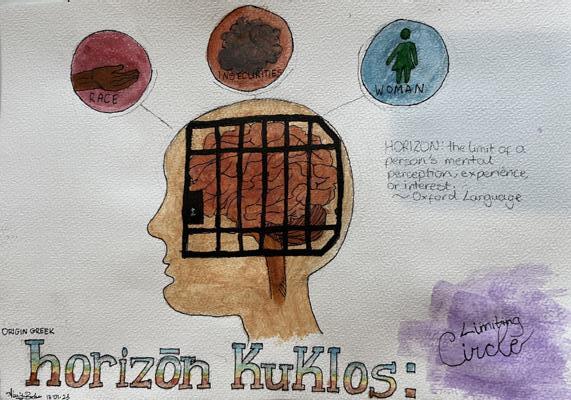 RACE
INSECURITIES
WOMAN
HORIZON: the limit of a
person's mental
perception, experience,
or interest.
~Oxford Language
Limiting
Circle
ORIGIN GREEK
horizōn Kuklos: